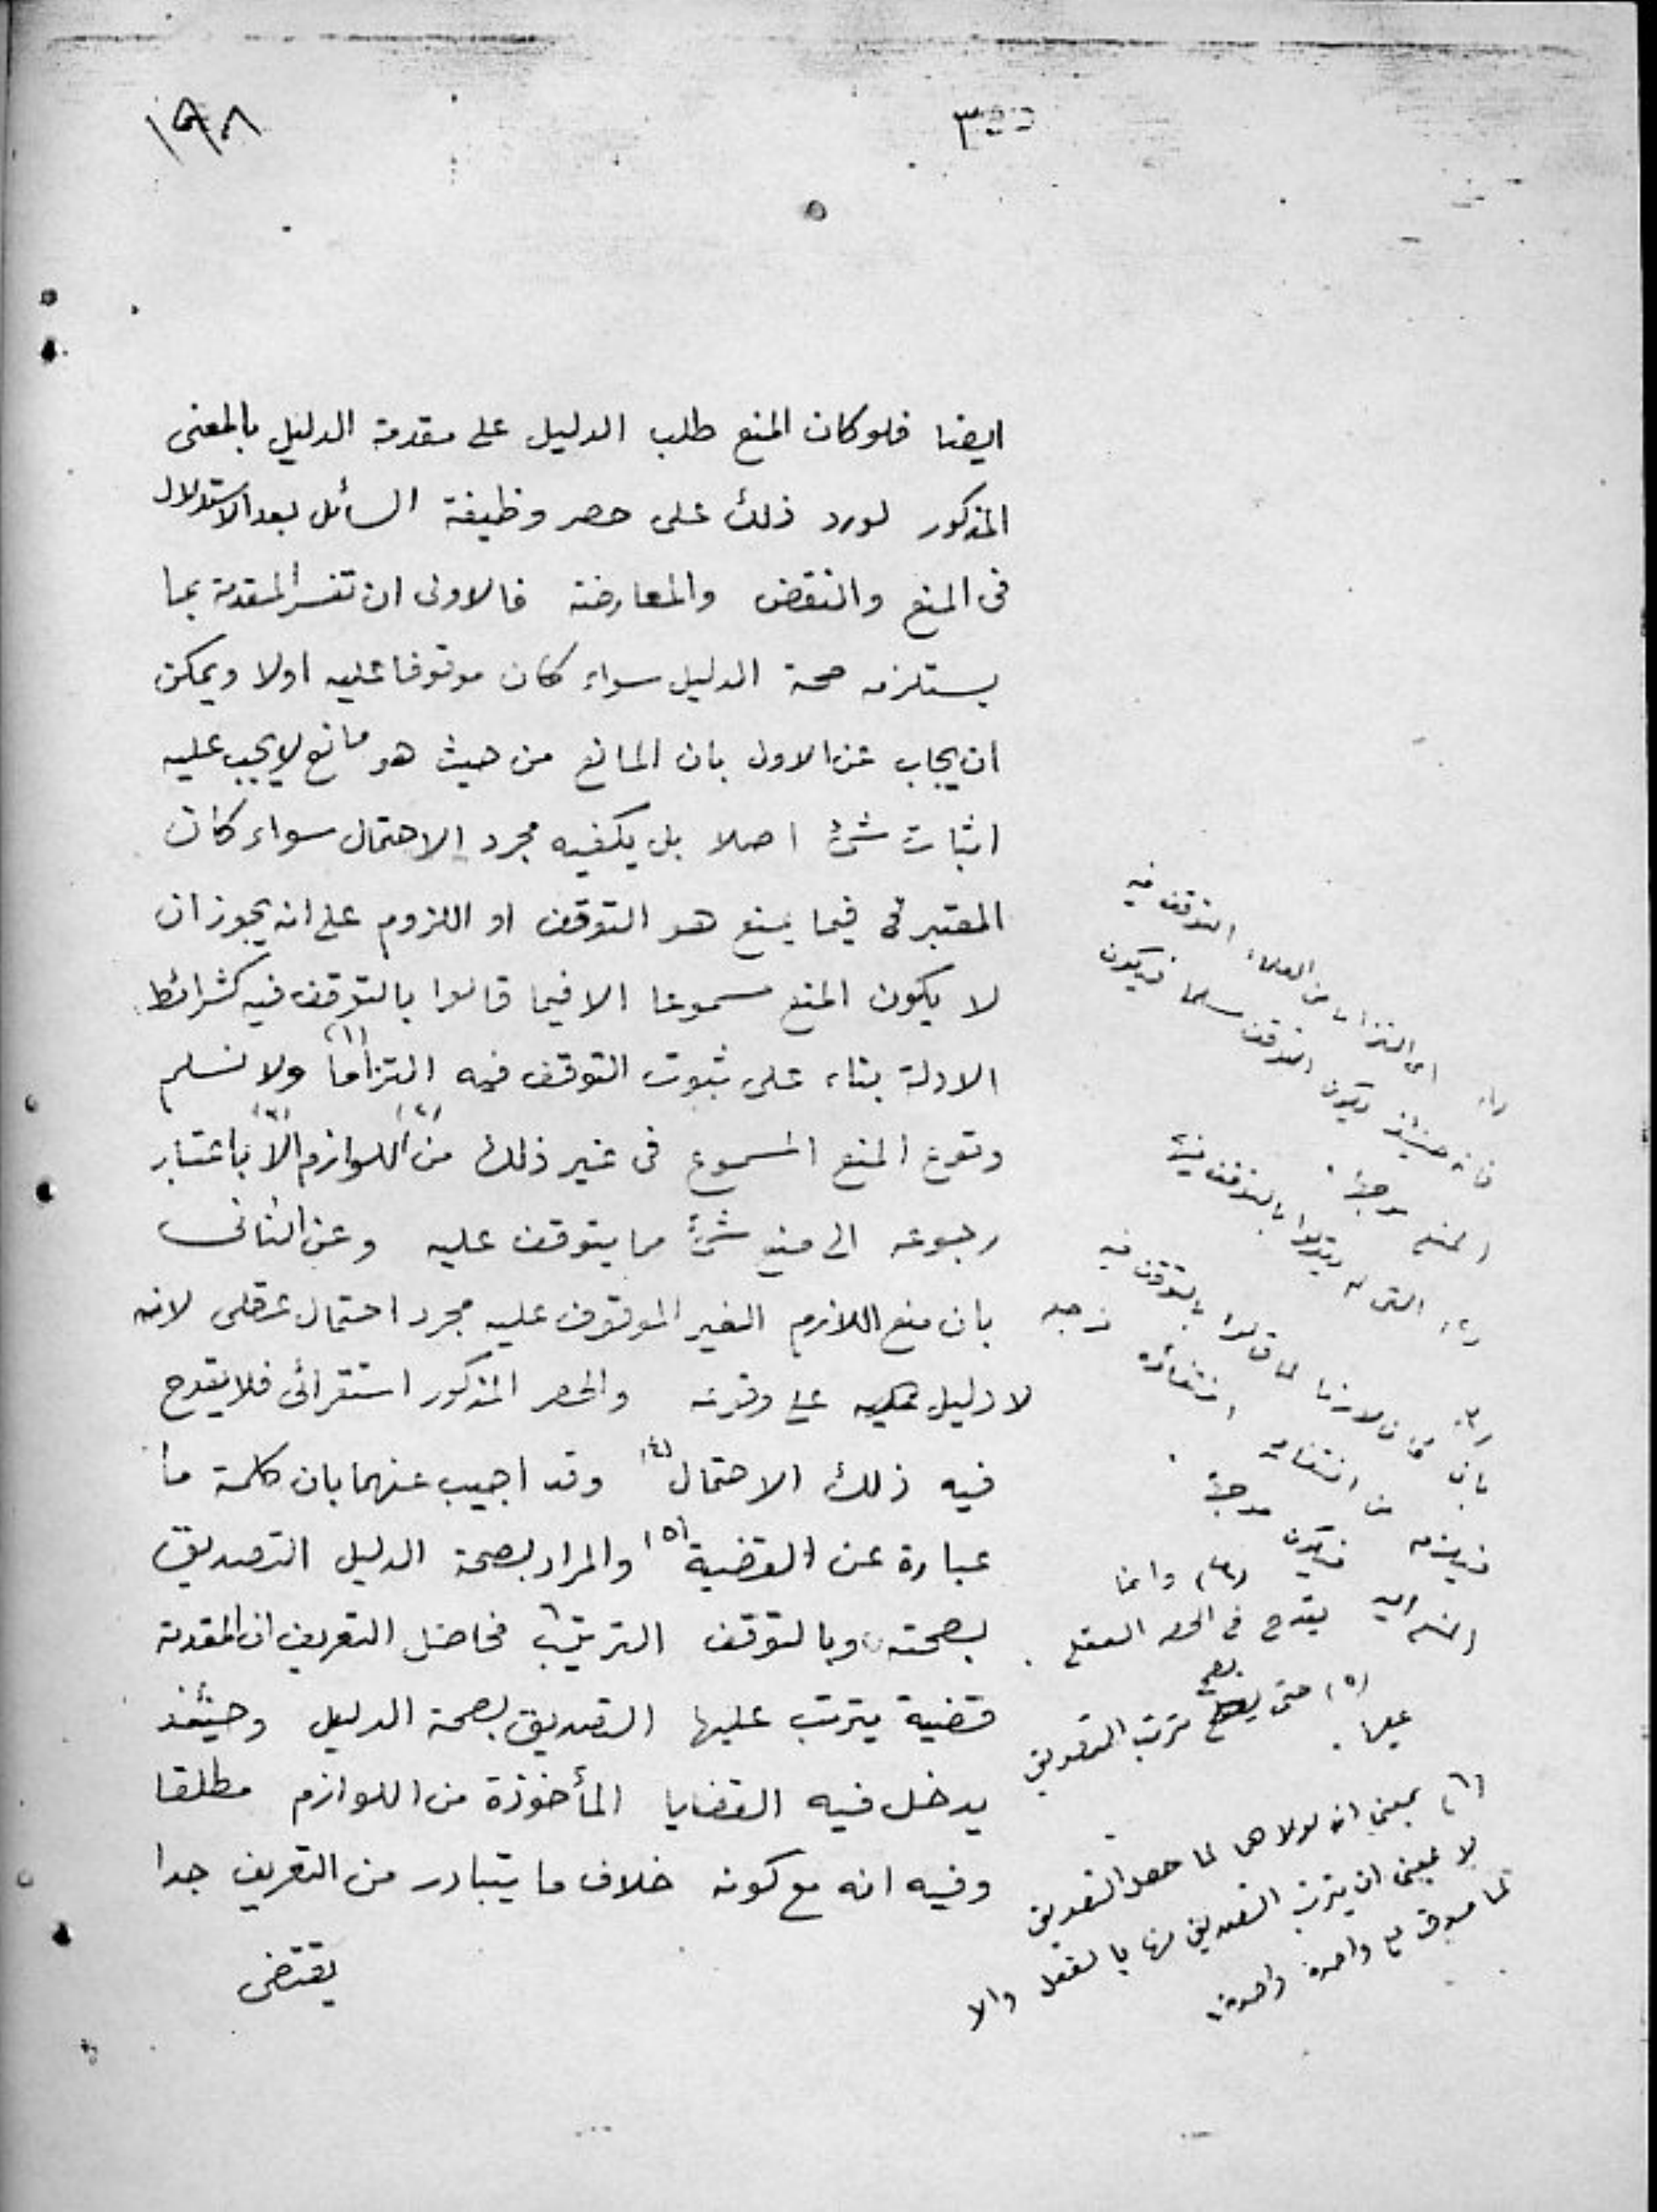 ١٩٨
٣
ايضا فلو كان المنع طلب الدليل على مقدمة الدليل بالمعنى
المذكور لورد ذلك على حصر وظيفة السائل بعد الاستدلال
فى المنع والنقض والمعارضة فالاولى ان تفسر المقدمة بما
يستلزمه صحة الدليل سواء كان موقوفا عليه اولا ويمكن
ان يجاب عن الاول بان المانع من حيث هو مانع لا يجب عليه
اثبات شئ اصلا بل يكفيه مجرد الاحتمال سواء كان
المعتبر فى فيما يمنع هو التوقف او اللزوم على انه يجوز ان
لا يكون المنع مسموعا الا فيما قالوا بالتوقف فيه كشرائط
الادلة بناء على ثبوت التوقف فيه التزاما (١) ولا نسلم
وقوع المنع المسموع فى غير ذلك من اللوازم (٢) الا (٣) باعتبار
رجوعه الى منع شئ مما يتوقف عليه وعن الثانى
بان منع اللازم الغير الموقوف عليه مجرد احتمال عقلى لانه
لا دليل على وقوعه والحصر المذكور استقرائى فلا يقدح
فيه ذلك الاحتمال (٤) وقد اجيب عنهما بان كلمة ما
عبارة عن القضية (٥) والمراد بصحة الدليل التصديق
بصحته وبالتوقف الترتب ٦ فحاصل التعريف ان المقدمة
قضية يترتب عليها التصديق بصحة الدليل وحينئذ
يدخل فيه القضايا المأخوذة من اللوازم مطلقا
وفيه انه مع كونه خلاف ما يتبادر من التعريف جدا
يقتضى
(١) اى التزاما من العلماء التوقف فيه
فانه حينئذ يكون التوقف مسلما فيكون
المنع موجها .
(٢) التى لم يقولوا بالتوقف فيها
(٣) بان كان لازما لما قالوا بالتوقف فيه
فيلزم من انتفائه انتفائه
فيكون موجها
(٤) وانما
يقدح فى الحصر العقلى .
(٥) حتى يصح ترتب التصديق
عليها .
(٦) بمعنى انه لولاها لما حصل التصديق
لا بمعنى ان يترتب التصديق بها بالفعل والا
لما صدق على واحدة واحدة